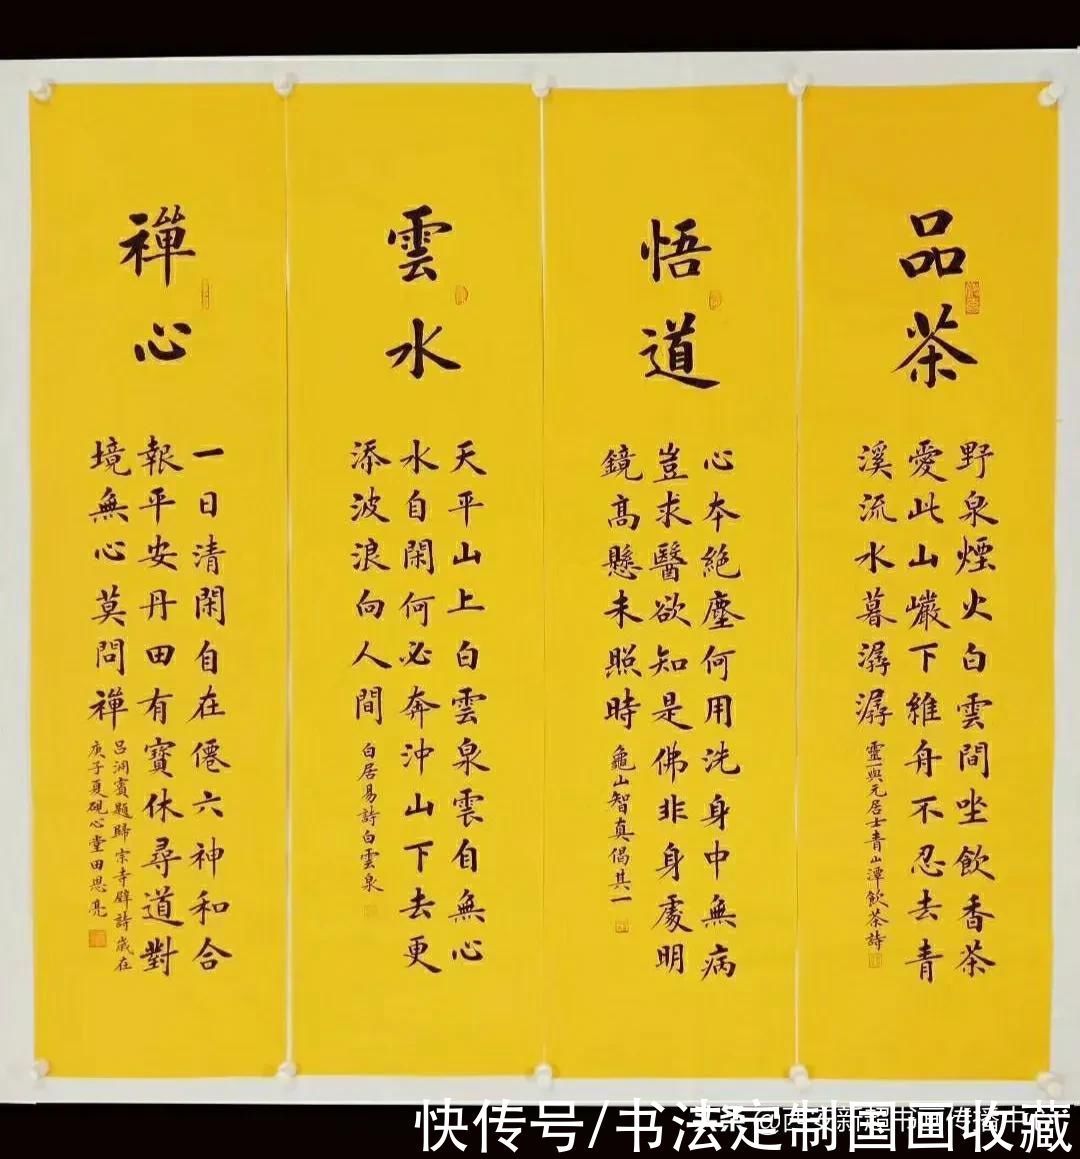 品茶
野泉煙火白雲間坐飲香茶
愛此山巖下維舟不忍去青
溪流水暮潺潺
靈一與元居士青山潭飲茶詩
悟道
心本絕塵何用洗身中無病
豈求醫欲知是佛非身處明
鏡高懸未照時
龜山智真偈其一
雲水
天平山上白雲泉雲自無心
水自閑何必奔沖山下去更
添波浪向人間
白居易詩白雲泉
禪心
一日清閑自在僊六神和合
報平安丹田有寶休尋道對
境無心莫問禪
呂洞賓題歸宗寺壁詩歲在
庚子夏硯心堂田恩亮
快传号/书法定制国画收藏